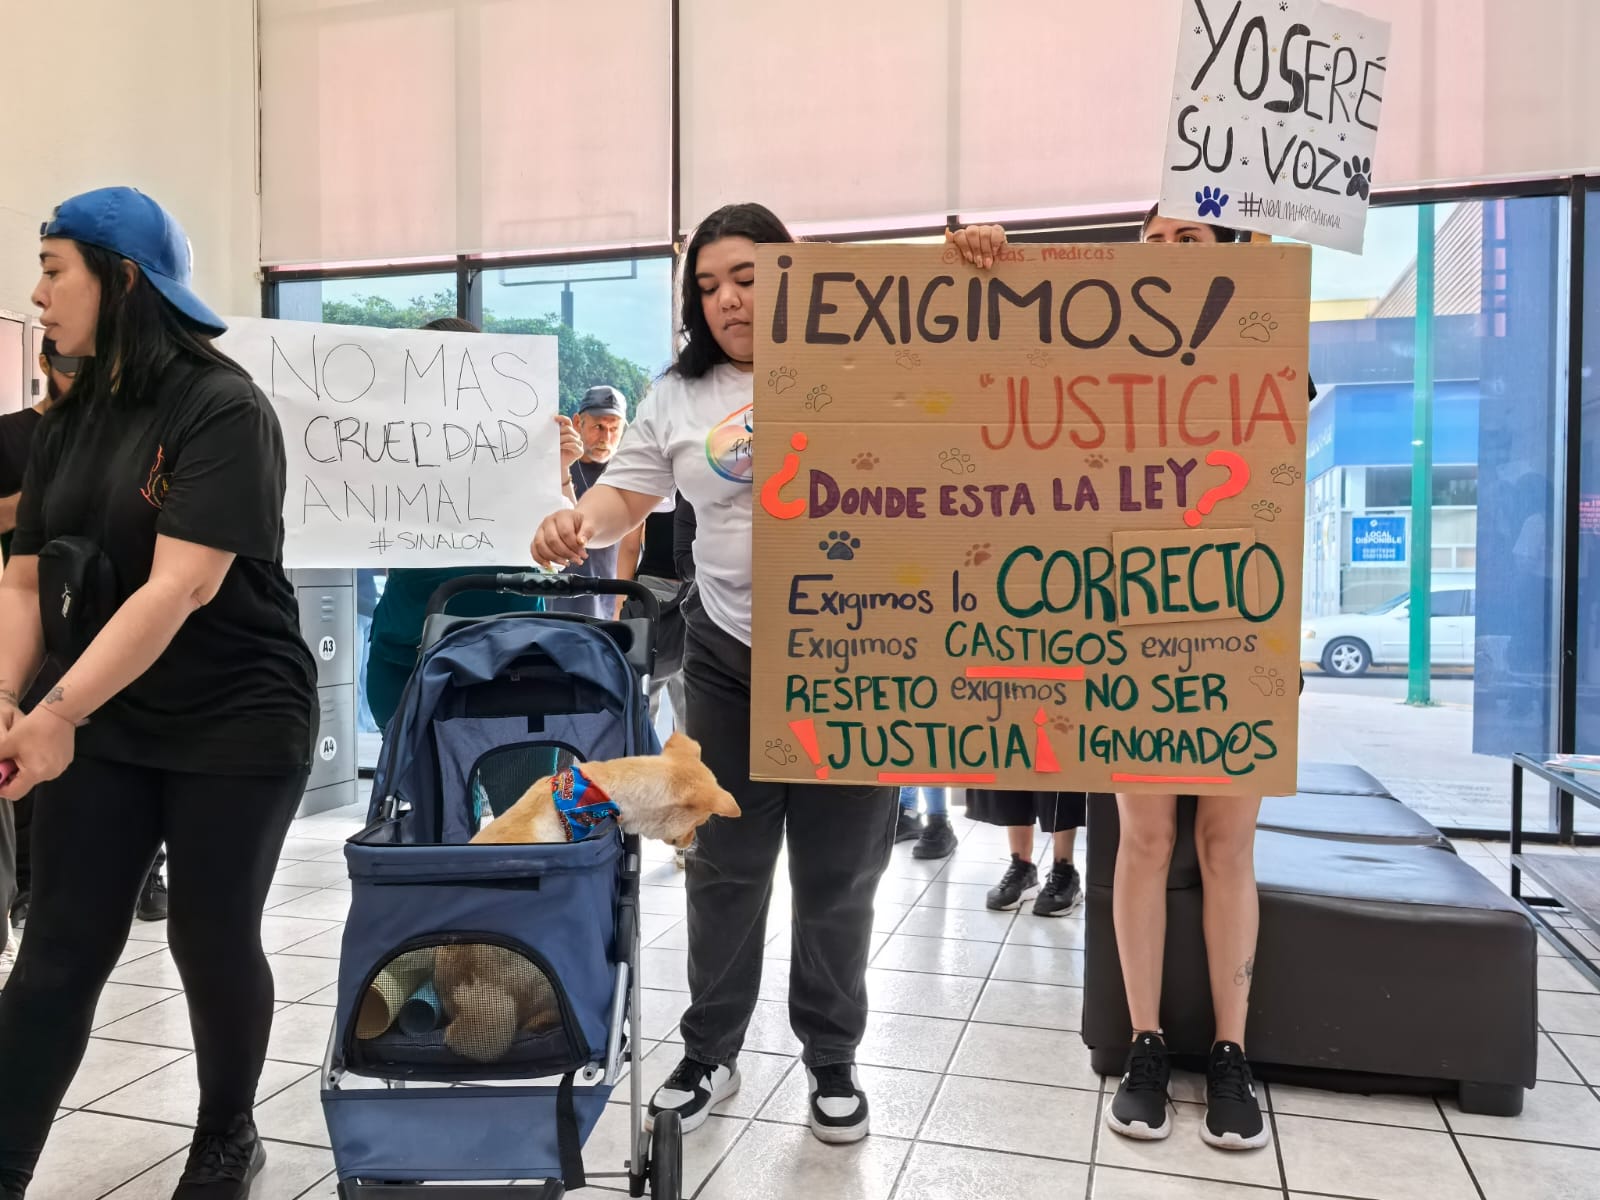 YO SERÉ
SU VOZ
#NOALMALTRATOANIMAL
NO MAS
CRUELDAD
ANIMAL
#SINALOA
tas_medicas
¡EXIGIMOS!
"JUSTICIA"
¿DONDE ESTA LA LEY?
EXIGIMOS lo CORRECTO
EXIGIMOS CASTIGOS exigimos
RESPETO exigimos NO SER
!JUSTICIA¡ IGNORAD@S
LOCAL
DISPONIBLE
A3
A4